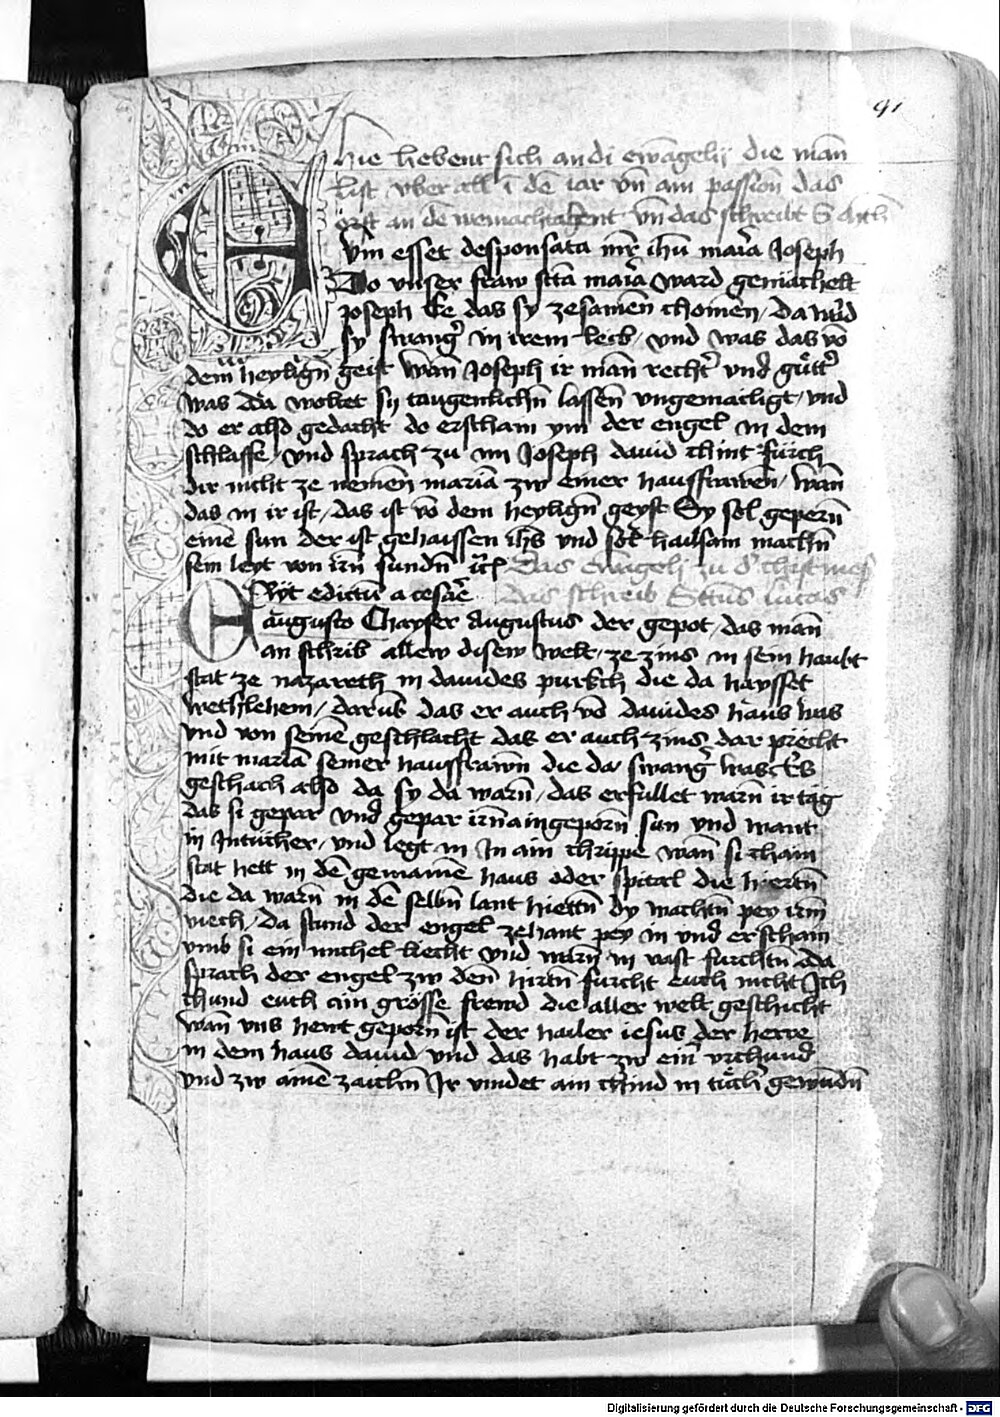 91
hie hebent sich an di ewāgelij die man
list vber all ī dē iar vn̄ am passion das
an dē weinachtabent vn̄ das schreibt S
Cvm esset desponsata mr̄ ihū maria Joseph
Do vnser fraw sctā maria ward gemāchelt
Joseph Ee das sy zesamēn chomen / da ward
sy swang' in irem leib / vnd was das vō
dem heylign̄ geist wan̄ Joseph ir man̄ recht' vnd gütt'
was da wolt sy taugenlichn̄ lassen̄ vngemailigt / vnd
do er also gedacht do erscham ym der engel in dem
schlaffe / vnd sprach zu im Joseph dauid chint fürch
dir nicht ze nemēn mariā zw einer hausfrawen / wan̄
das in ir ist / das ist vō dem heylign̄ geyst Sy sol gepern̄
einē sun der ist gehaissen ihs̄ vnd sol hailsam machn̄
sein leyt von irn̄ sundn̄ Das ewāgelj zu d' christmes
Exijt edictū a cesarē Das schreib Sctūs lucas
augusto Chayser Augustus der gepot / das man̄
an schrib allew disew welt / ze zins in sein haubt
stat ze nazareth in dauides purkch die da haysset
wethlehem / darub das er auch vō dauides haus was
vnd von seinē geschlächt das er auch zins dar prēcht
mit mariā seiner hausfrawn̄ die da swang' was Es
geschach also da sy da warn̄ / das erfullet warn̄ ir täg
das si gepar vnd gepar irn̄ aingeporn̄ sun vnd want
in In tücher / vnd legt in In ain chrippe wan̄ si cham
stat hett in dē gemainē haus oder spital die hiertn̄
die da warn̄ in dē selbn̄ lant hiettn̄ dy wachtn̄ pey irm̄
viech / da stund der engel zehant pey in vnd erscham
vmb si ein michel liecht vnd warn̄ in vast furchtn̄ da
sprach der engel zw den̄ hirtn̄ furcht euch nicht Ich
chund euch ain grösse frewd die aller welt geschicht
wan̄ vns hewt geporn̄ ist der hailer iesus der herre
in dem haus dauid vnd das habt zw ein̄ vrchund
vnd zw ainē zaichn̄ Ir vindet ain chind in tüch' gewundn̄
Digitalisierung gefördert durch die Deutsche Forschungsgemeinschaft - DFG